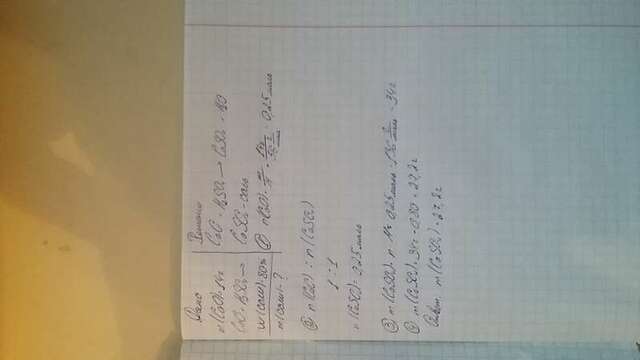 Дано
Решение
m(CaO)=14г
CaO + H₂SO₄ → CaSO₄ + H₂O
CaO + H₂SO₄ →
CaSO₄ - соль
W(соли)=80%
① n(CaO)= m/M = = 0,25 моль
m(соли)=?
② n(CaO) : n(CaSO₄)
1 : 1
n(CaSO₄)= 0,25 моль
③ m(CaSO₄)= n · M = 0,25 моль · 136 г/моль = 34г
④ m(CaSO₄)= 34г · 0,80 = 27,2г
Ответ: m(CaSO₄)= 27,2г